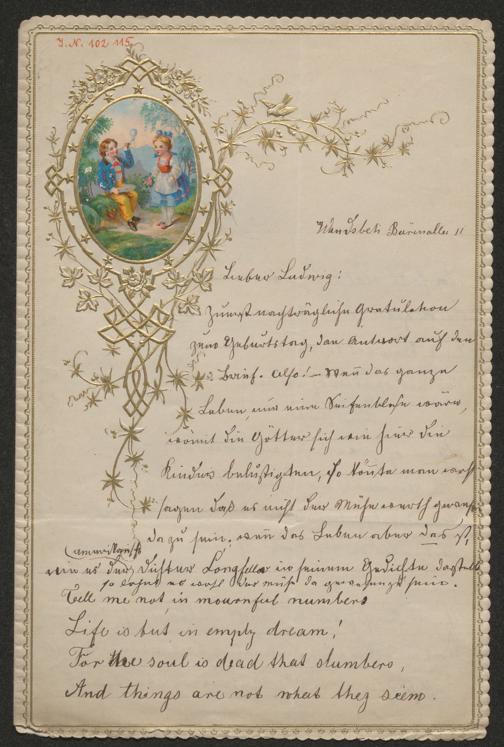 I. N. 102 115
Wandsbek Bärenallee 11
Lieber Ludwig!
Zuerst nachträgliche Gratulation
zum Geburtstag, dan Antwort auf den
Brief. Also! — Wen̄ das ganze
Leben, nur eine Seifenblase wäre,
womit die Götter sich wie hier die
Kinder belustigten, so kön̄te man wohl
sagen daß es nicht der Mühe werth gewesen
da zu sein. wen̄ das Leben aber das ist
(amerikanische)
wie es der Dichter Longfellow in seinem Gedichte darstellt
so lohnt es wohl der Mühe da gewesen zu sein.
Tell me not in mournful numbers
Life is but in empty dream!
For the soul is dead that slumbers,
And things are not what they seem.